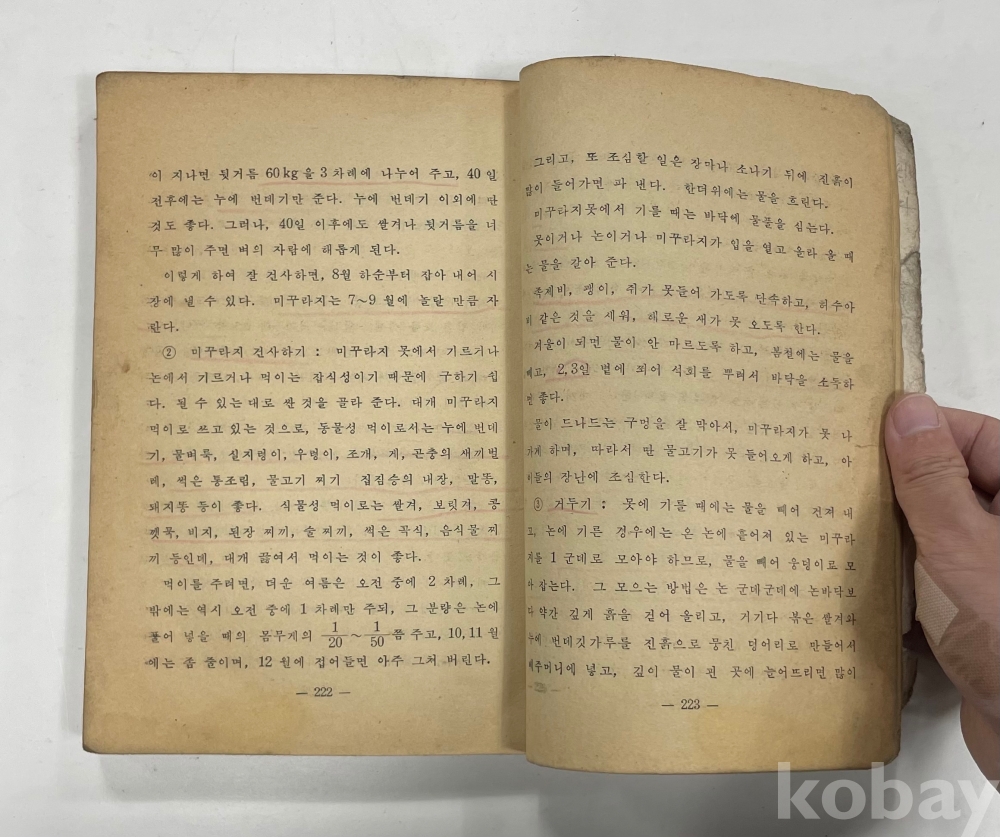 이 지나면 뒷거름 60kg을 3차례에 나누어 주고, 40일
전후에는 누에 번데기만 준다. 누에 번데기 이외에 딴
것도 좋다. 그러나, 40일 이후에도 쌀겨나 뒷거름을 너
무 많이 주면 벼의 자람에 해롭게 된다.
이렇게 하여 잘 건사하면, 8월 하순부터 잡아 내어 시
장에 낼 수 있다. 미꾸라지는 7~9월에 놀랄 만큼 자
란다.
② 미꾸라지 건사하기 : 미꾸라지 못에서 기르거나
논에서 기르거나 먹이는 잡식성이기 때문에 구하기 쉽
다. 될 수 있는 대로 싼 것을 골라 준다. 대개 미꾸라지
먹이로 쓰고 있는 것으로, 동물성 먹이로서는 누에 번데
기, 물벼룩, 실지렁이, 우렁이, 조개, 게, 곤충의 새끼벌
레, 썩은 통조림, 물고기 찌기 집짐승의 내장, 말똥,
돼지똥 등이 좋다. 식물성 먹이로는 쌀겨, 보릿겨, 콩
깻묵, 비지, 된장 찌끼, 술 찌끼, 썩은 곡식, 음식물 찌
끼 등인데, 대개 끓여서 먹이는 것이 좋다.
먹이를 주려면, 더운 여름은 오전 중에 2차례, 그
밖에는 역시 오전 중에 1차례만 주되, 그 분량은 논에
풀어 넣을 때의 몸무게의 1/20~1/50쯤 주고, 10,11월
에는 좀 줄이며, 12월에 접어들면 아주 그쳐 버린다.
— 222 —
그리고, 또 조심할 일은 장마나 소나기 뒤에 진흙이
많이 들어가면 파 낸다. 한더위에는 물을 흐린다.
미꾸라지못에서 기를 때는 바닥에 물풀을 심는다.
못이거나 논이거나 미꾸라지가 입을 열고 올라 올 때
는 물을 갈아 준다.
족제비, 괭이, 쥐가 못들어 가도록 단속하고, 허수아
비 같은 것을 세워, 해로운 새가 못 오도록 한다.
겨울이 되면 물이 안 마르도록 하고, 봄철에는 물을
빼고, 2,3일 볕에 쬐어 석회를 뿌려서 바닥을 소독하
면 좋다.
물이 드나드는 구멍을 잘 막아서, 미꾸라지가 못 나
가게 하며, 따라서 딴 물고기가 못 들어오게 하고, 아
이들의 장난에 조심한다.
③ 거두기 : 못에 기를 때에는 물을 빼어 건져 내
고, 논에 기른 경우에는 온 논에 흩어져 있는 미꾸라
지를 1군데로 모아야 하므로, 물을 빼어 웅덩이로 모
아 잡는다. 그 모으는 방법은 논 군데군데에 논바닥보
다 약간 깊게 흙을 걷어 올리고, 거기다 볶은 쌀겨와
누에 번데깃가루를 진흙으로 뭉친 덩어리로 만들어서
베주머니에 넣고, 깊이 물이 괸 곳에 늘어뜨리면 많이
— 223 —
kobay